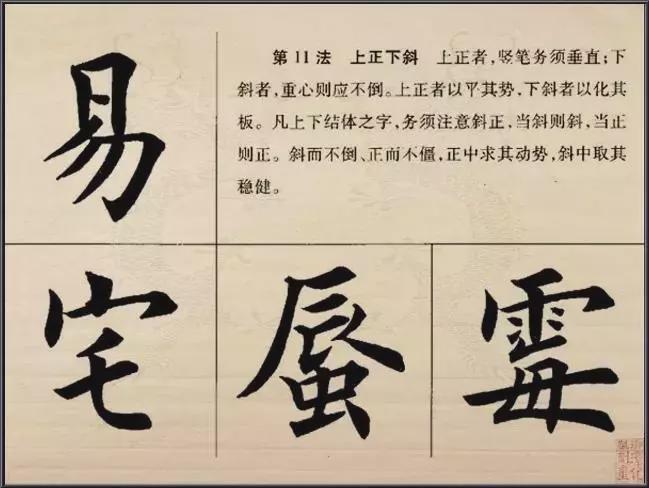 易
第11法 上正下斜 上正者，竖笔务须垂直；下
斜者，重心则应不倒。上正者以平其势，下斜者以化其
板。凡上下结体之字，务须注意斜正，当斜则斜，当正
则正。斜而不倒、正而不僵，正中求其动势，斜中取其
稳健。
宅 蜃 霉